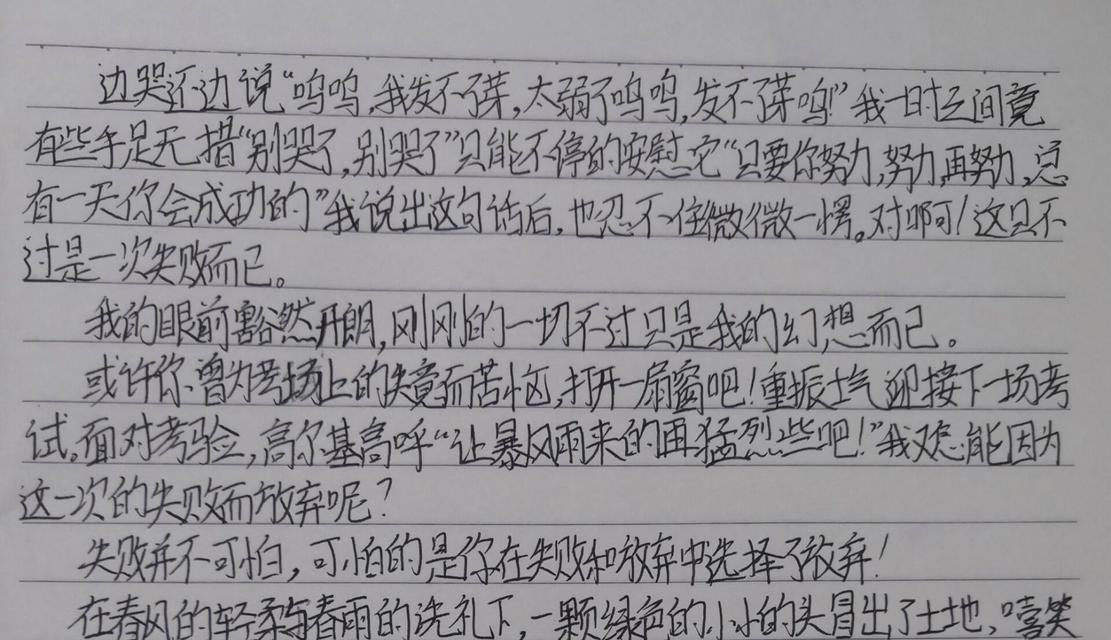 边哭还边说“呜呜,我发不了芽,太弱了呜呜,发不了芽呜!”我一时之间竟
有些手足无措“别哭了,别哭了”只能不停的安慰它“只要你努力,努力,再努力,总
有一天你会成功的”我说出这句话后,也忍不住微微一愣。对啊!这只不
过是一次失败而已。
我的眼前豁然开朗,刚刚的一切不过只是我的幻想而已。
或许你曾为考场上的失竟而苦恼,打开一扇窗吧!重振士气迎接下一场考
试。面对考验,高尔基高呼“让暴风雨来的更猛烈些吧!”我又怎能因为
这一次的失败而放弃呢?
失败并不可怕,可怕的是你在失败和放弃中选择了放弃!
在春风的轻柔与春雨的洗礼下,一颗绿色的小小的头冒出了土地,嘻笑